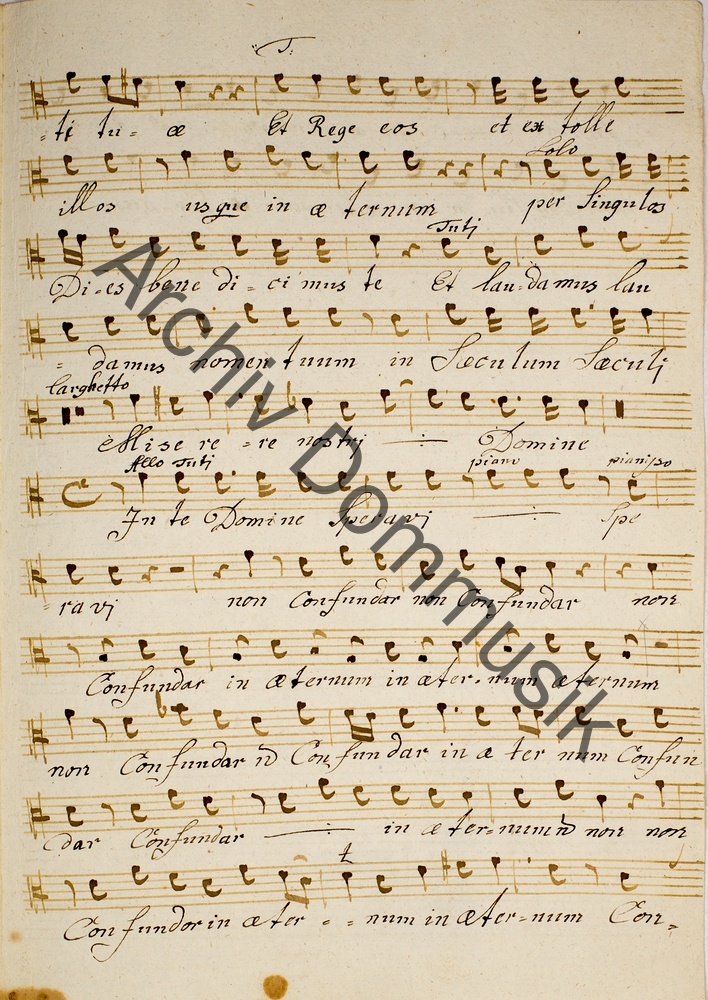 T:
= ti tu = æ Et Rege eos et ex tolle
Solo
illos usque in æ ternum per Singulos
Tutj
Di = es bene di = ci mus te Et lau = da mus lau
= damus nomen tuum in Sæculum Sæculj
larghetto
Mise re = re nostrj Domine
Allo Tutj piano pianisso
In te Domine Speravj Spe
= ra vj non Confundar non Confundar non
Confundar in æternum in æter = num æternum
non Confundar n̄ Confundar in æ ter num Confun
dar Confundar in æter = num n̄ non non
t
Confundor in æter = = num in æter = num Con =
Archiv Dommusik